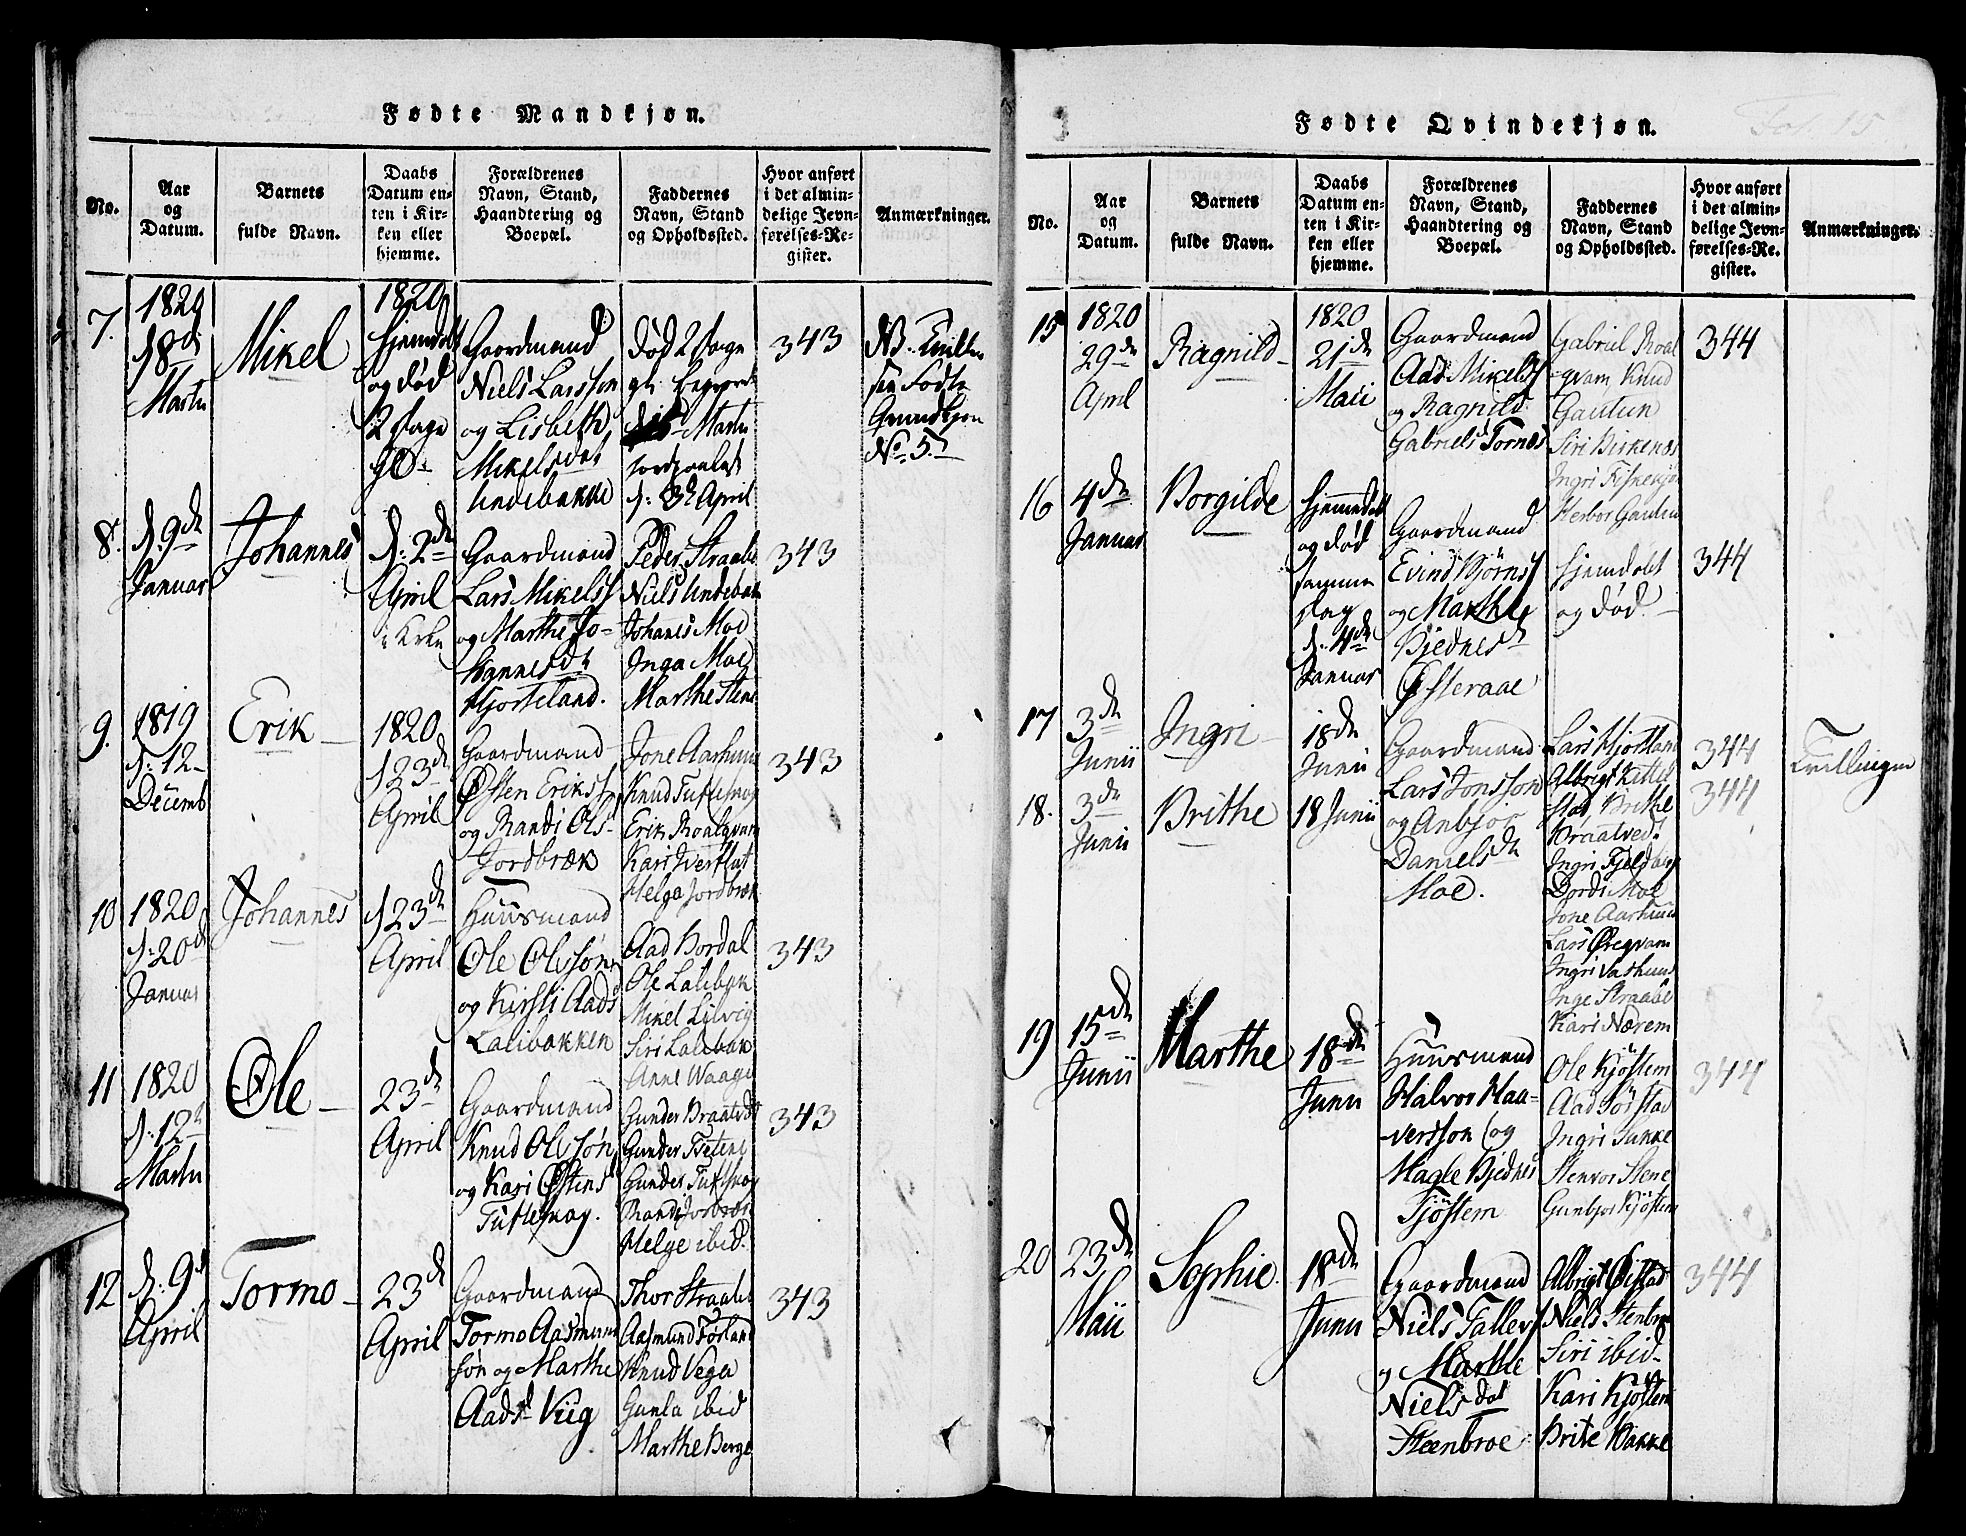 Fødte Mandkjøn.
No.
Aar
og
Datum.
Barnets
fulde Navn.
Daabs
Datum en-
ten i Kir-
ken eller
hjemme.
Forældrenes
Navn, Stand,
Haandtering og
Boepæl.
Faddernes
Navn, Stand
og Opholdssted.
Hvor anført
i det almin-
delige Jevn-
førelses-Re-
gister.
Anmærkninger.
7.
1820
18d
Martii
Mikel
1820
hjemdøbt
og død
2 Dage
gl.
Gaardmand
Niels Larsson
og Lisbeth
Mikelsdat
Undebakke
død 2 Dage
gl.
Martii
April
343
NB.
Fødte
No. 5.
8.
d. 9de
Januar
Johannes
d. 2de
April
i Kirken
Gaardmand
Lars Mikelss
og Marthe Jo-
hannesdt
Hjorteland.
Peder Straabe
Niels Undebak
Johanes Moe
Inga Moe
Marthe Stene
343
9.
1819
d. 12
Decemb
Erik
1820
d 23de
April
Gaardmand
Østen Erikss
og Randi Ols
Jordbræk
Jone Aarhuus
Knud Tuftesnog
Erik Roalqvam
Kari Tverflot
Helga Jordbræk
343
10
1820
d. 20d
Januar
Johannes
d 23de
April
Huusmand
Ole Olssøn
og Kirsti Aads
Lalibakken
Aad Hordal
Ole Lalibak
Mikel Lilvig
Siri Lalibak
Anne Waage
343
11
1820
d. 12te
Martii
Ole
23de
April
Gaardmand
Knud Olssøn
og Kari Østens
Tuftesnog.
Gunder Braatvedt
Gunder
Gunder Tuftesnog
Randi Jorbræk
Helge ibid.
343
12
d. 9d
April
Tormo
23d
April
Gaardmand
Tormo Aasmunn
søn og Marthe
Aadsd Viig
Thor Straabe
Aasmund Førland
Knud Vega
Gunla ibid
Marthe Berge
343
Fol. 15
Fødte Qvindekjøn.
No.
Aar
og
Datum.
Barnets
fulde Navn.
Daabs
Datum en-
ten i Kir-
ken eller
hjemme.
Forældrenes
Navn, Stand,
Haandtering og
Boepæl.
Faddernes
Navn, Stand
og Opholdssted.
Hvor anført
i det almin-
delige Jevn-
førelses-Re-
gister.
Anmærkninger.
15
1820
29de
April
Ragnild
1820
21de
Maii
Gaardmand
Aad Mikelss
og Ragnild
Gabriels Tornes
Gabriel Roal
qvam Knud
Gautun
Siri Birkenes
Ingri
Herbor Gautun
344
16
4de
Januar
Borgilde
hjemmedøbt
og død
samme
Dag
d. 4de
Januar
Gaardmand
Evind Bjørnss
og Marthe
Bjednesd
Østeraae
hjemdøbt
og død
344
17
3de
Junii
Ingri
18de
Junii
Gaardmand
Lars Jonsson
og Anbjør
Danielsdt
Moe.
Lars Hjortland
Albrigt Kittel
stad, Brithe
Braatved
Ingri Fjeldberg
Dordi Moe
344
Tvillinger
18.
3de
Junii
Brithe
18 Junii
Jone Aarhuus
Lars Øregvam
Ingri Aarhuus
Inge Straabe
Kari Nærem
344
19
15de
Junii
Marthe
18de
Junii
Huusmand
Halvor Haa-
versson og
Magle Bjednes
Tjøstem
Ole Kjøstem
Aad Sørstad
Ingri Sukke
Stenvor Stene
Gunbjor Kjøstem
344
20
23de
Maii
Sophie.
18de
Junii
Gaardmand
Niels Tallevs
og Marthe
Nielsdat
Steenbroe
Albrigt Østad
Niels Stenbro
Siri ibid
Kari Kjøstem
Brite Bakke
344